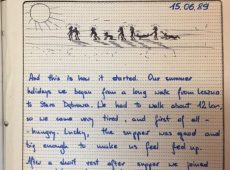 15.06.89
And this is how it started. Our summer
holidays we began from a long walk from Leszno
to Stara Dąbrowa. We had to walk about 12 km,
so we came very tired, and first of all -
- hungry. Lucky, the supper was good and
big enough to make us feel fed up.
After a short rest after supper we joined